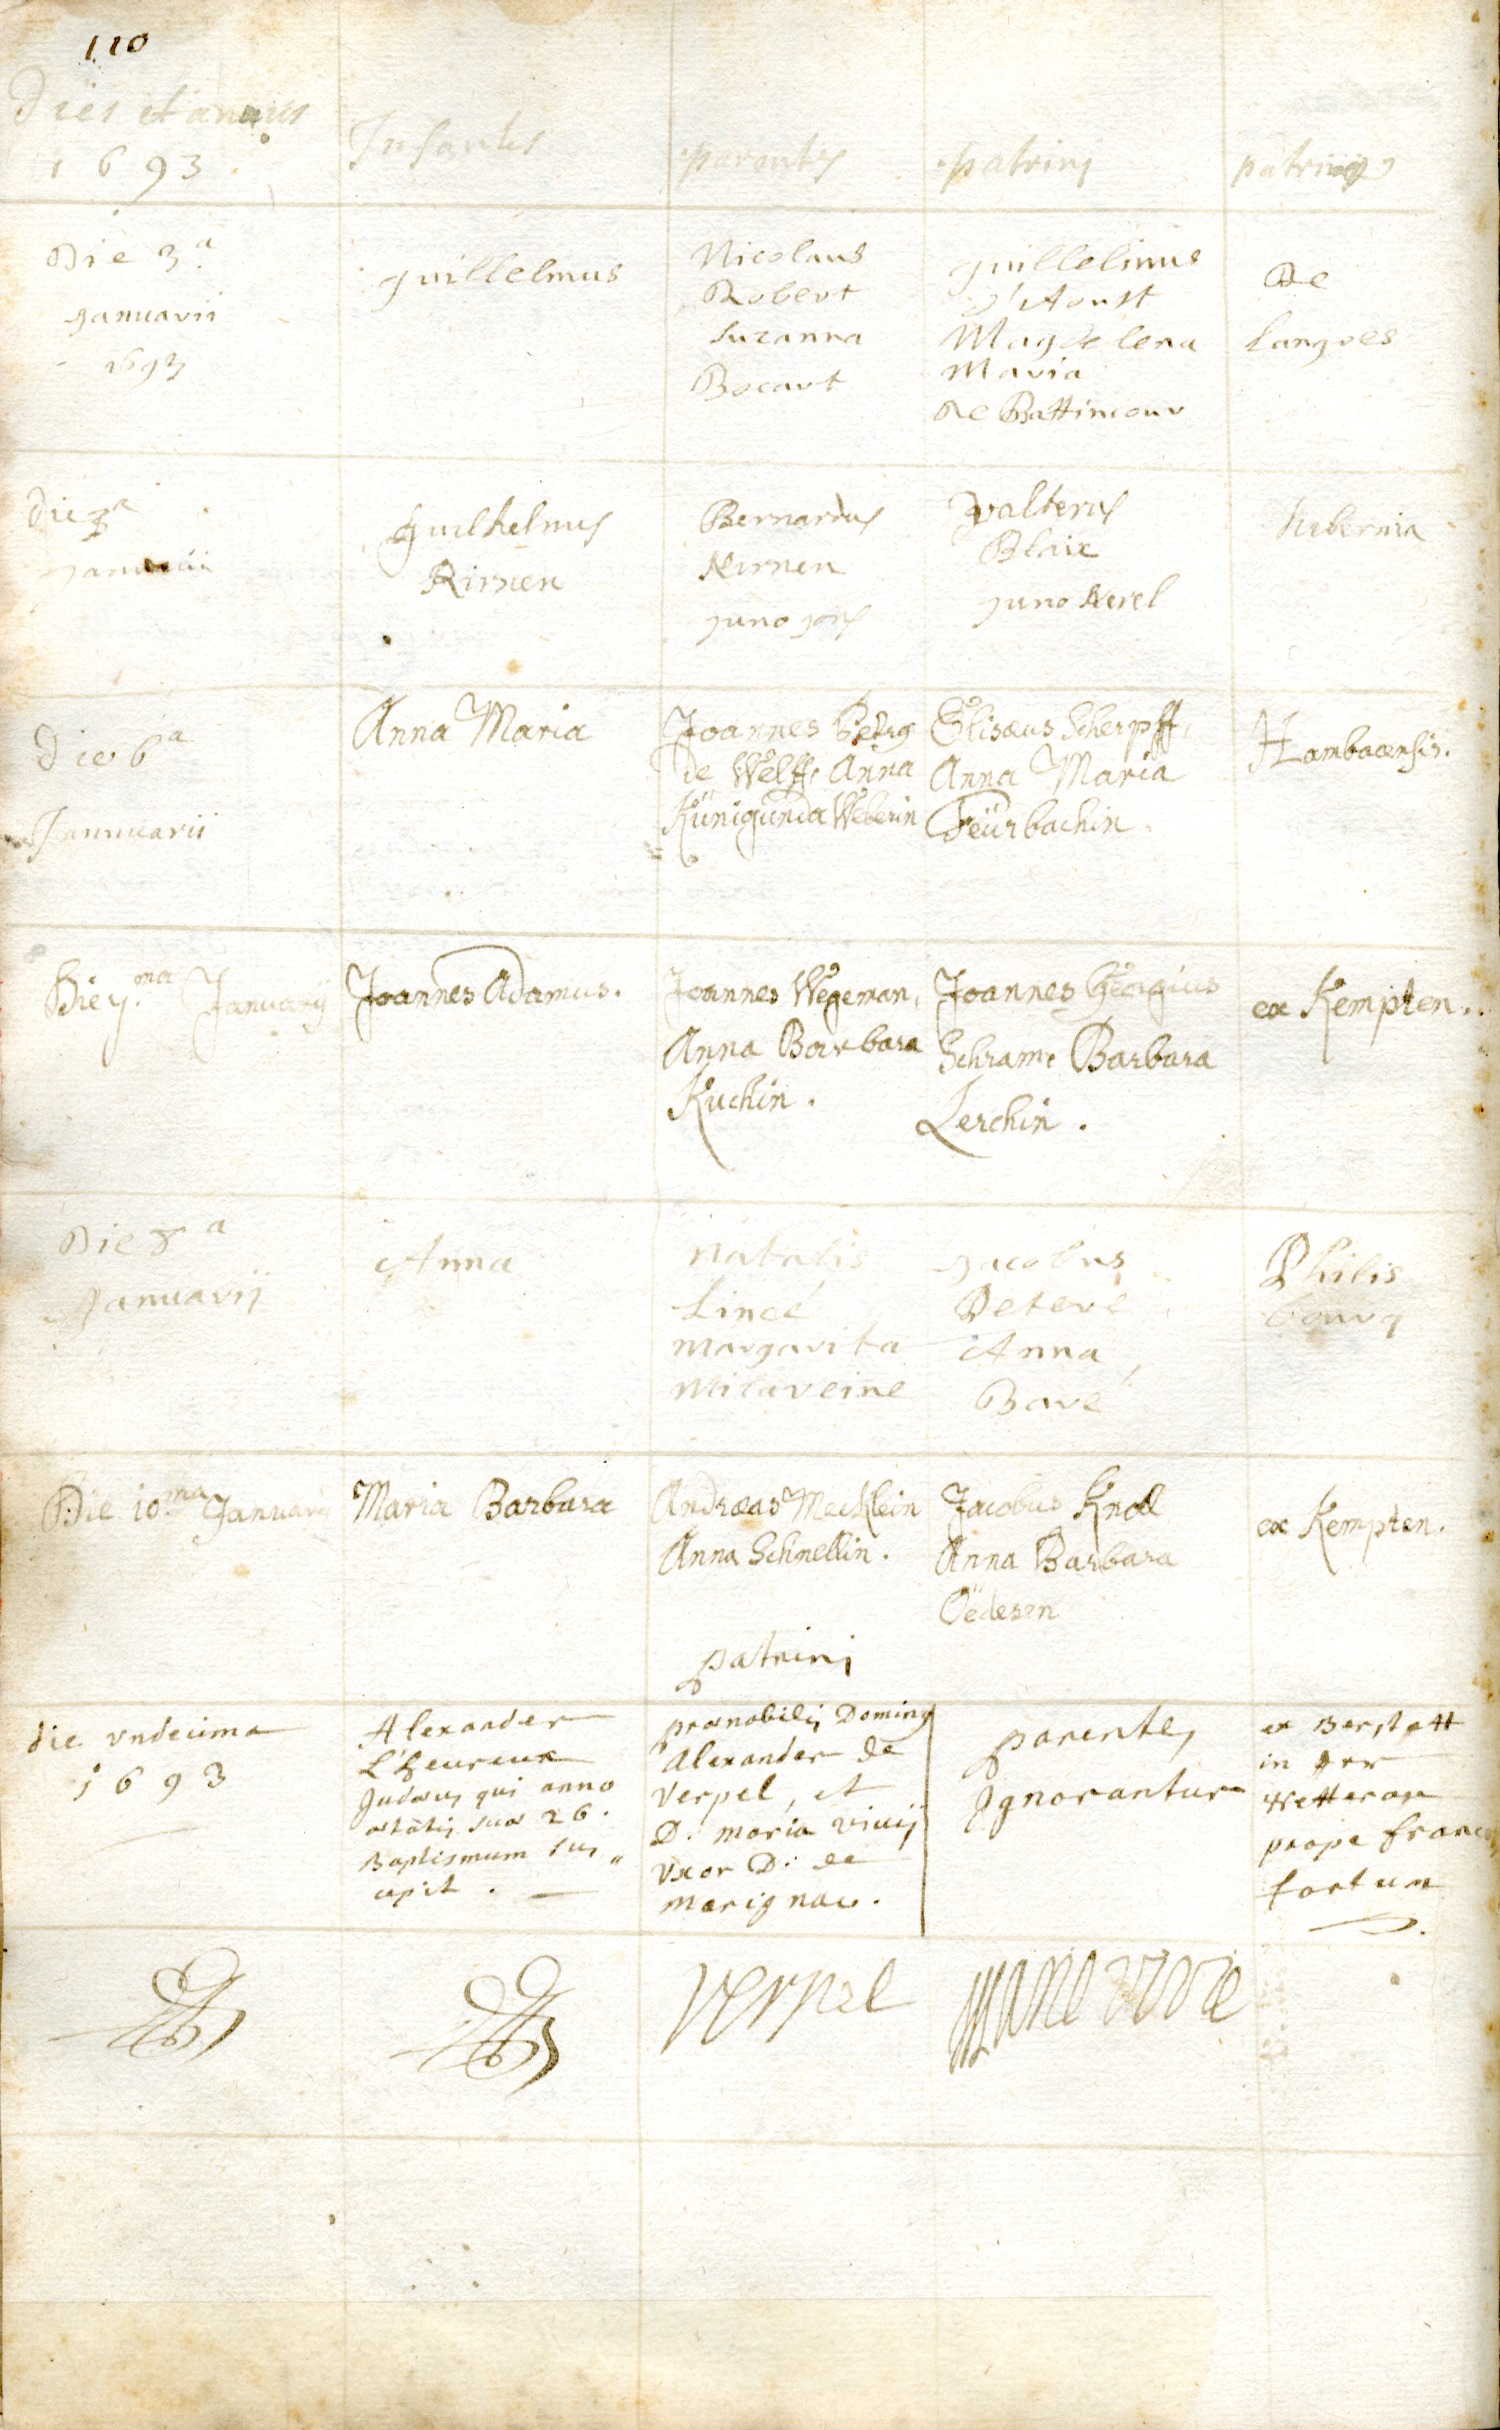 110
Dies et annus
1693
Infantes
parentes
patrini
patria
Die 3.a
Januarii
1693
guillelmus
Nicolaus
Robert
Suzanna
Bocart
guillelmus
d'Aoust
Magdelena
Maria
De Battincour
De
Langres
Die 3a
Januarii
Guilhelmus
Kirnen
Bernardus
Kirnen
Juno
Valterus
Blaix
Juno Nerel
hibernia
Die 6a
Jannuarii
Anna Maria
Joannes Petrg
de Welff, Anna
Künigunda Weberin
Elisæus Scherpff,
Anna Maria
Feürbachin.
Hambacensis.
Die 7.ma Januarij
Joannes Adamus.
Joannes Wegeman,
Anna Barbara
Kuchin.
Joannes Georgius
Schram, Barbara
Lerchin.
ex Kempten.
Die 8a
Januarij
Anna
Natalis
Lincé
Margarita
Milaveine
Jacobus
Deteré
Anna
Baré
Philis
bourg
Die 10.ma Januarij
Maria Barbara
Andræas Mecklein
Anna Schnellin.
Jacobus Knoll
Anna Barbara
Oëdesin
ex Kempten.
patrini
die vndecima
1693
Alexander
L'heureux
Judæus qui anno
ætatis suæ 26.
Baptismum sus„
cepit.
prænobilis Dominus
Alexander de
Verpel, et
D. maria vivij
Vxor D. de
Marignac.
parentes
Ignorantur
ex Berstatt
in der
Wetteraw
prope franco
fortum
Verpel